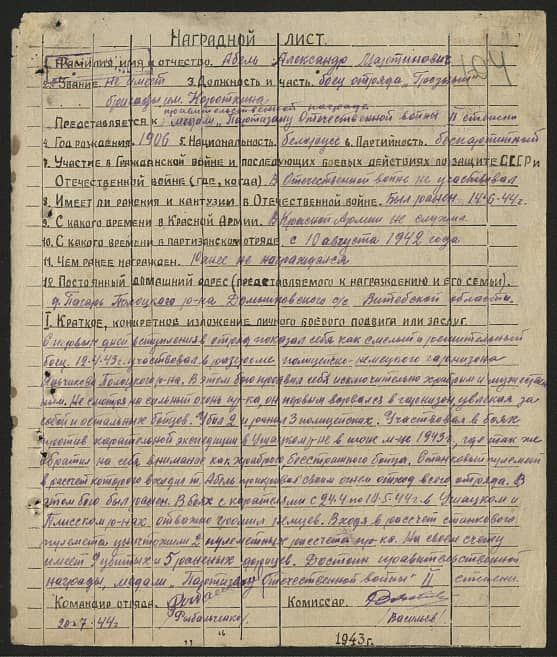 НАГРАДНОЙ ЛИСТ.
104
1. Фамилия, имя и отчество. Абель Александр Мартинович
2. Звание. не имеет 3. Должность и часть. боец отряда „Грозный"
бригады им. Короткина.
правительственной награде
Представляется к медали „Партизану Отечественной войны" II степени
4. Год рождения. 1906 5. Национальность. белорусс 6. Партийность. беспартийный
7. Участие в Гражданской войне и последующих боевых действиях по защите СССР и
Отечественной войне (где, когда). В Отечественной войне не участвовал.
8. Имеет ли ранения и кантузии в Отечественной войне. Был ранен 14-6-44г.
9. С какого времени в Красной Армии. В Красной Армии не служил
10. С какого времени в партизанском отряде. с 10 августа 1942 года
11. Чем ранее награжден. Ранее не награждался
12. Постоянный домашний адрес (представляемого к награждению и его семьи).
д. Полоцкого р-на с/с Витебской области.
I. Краткое, конкретное изложение личного боевого подвига или заслуг.
С первых дней вступления в отряд показал себя как смелый и решительный
боец. 12-4-43г. участвовал в разгроме полицейско-немецкого гарнизона
Полоцкого р-на. В этом бою проявил себя исключительно храбрым и мужествен-
ным. Не смотря на сильный огонь пр-ка, он первым ворвался в гарнизон, увлекая за
собой остальных бойцов. Убил 2 и ранил 3 полицейских. Участвовал в боях
против карательной экспедиции в Ушацком р-не в июне м-це 1943г, где так же
обратил на себя внимание как храброго бесстрашного бойца. Станковый пулемет
в рассчет которого входил т. Абель прикрывал своим огнем отход всего отряда. В
этом бою был ранен. В боях с карателями с 24.4 по 14-5-44г. в Ушацком и
Плисском р-нах отважно громил немцев. Входя в рассчет станкового
пулемета уничтожили 2 пулеметных рассчета пр-ка. На своем счету
имеет 9 убитых и 5 раненых фрицев. Достоин правительственной
награды, медали „Партизану Отечественной войны" II степени.
Командир отряда. Комиссар.
20-7-44г. /Рыбальченко/ /Васильев/
„ " 1943г.